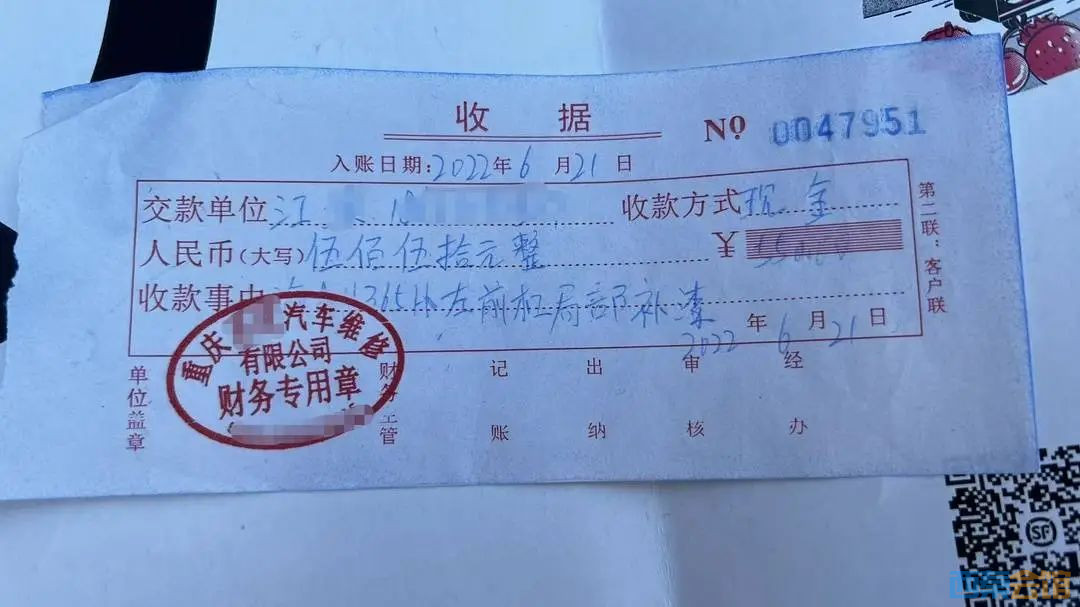 收 据
No 0047951
入账日期:2022年6月21日
交款单位 江 收款方式 现金
人民币(大写) 伍佰伍拾元整 ¥
收款事由 365 左前杠局部补漆
2022年6月21日
第二联:客户联
重庆 汽车维修
有限公司
财务专用章
单位盖章 财务主管 记账 出纳 审核 经办
SF